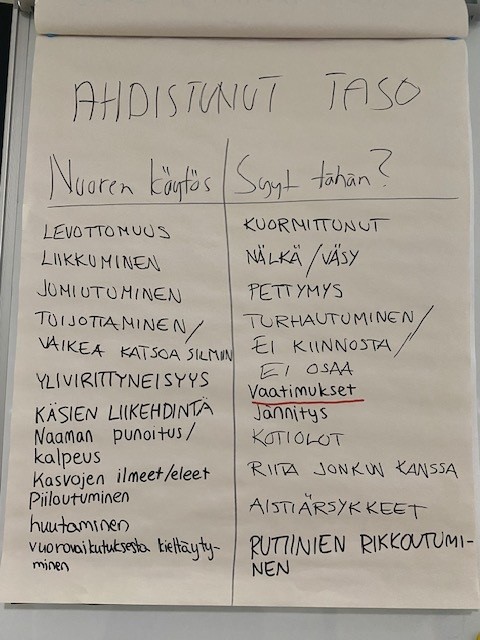 AHDISTUNUT TASO
Nuoren käytös
LEVOTTOMUUS
LIIKKUMINEN
JUMIUTUMINEN
TUIJOTTAMINEN/
VAIKEA KATSOA SILMIIN
YLIVIRITTYNEISYYS
KÄSIEN LIIKEHDINTÄ
Naaman punoitus/
kalpeus
Kasvojen ilmeet/eleet
Piiloutuminen
huutaminen
vuorovaikutuksesta kieltäyty-
minen
Syyt tähän?
KUORMITTUNUT
NÄLKÄ/VÄSY
PETTYMYS
TURHAUTUMINEN/
EI KIINNOSTA/
EI OSAA
Vaatimukset
Jännitys
KOTIOLOT
RIITA JONKUN KANSSA
AISTIÄRSYKKEET
RUTIINIEN RIKKOUTUMI-
NEN